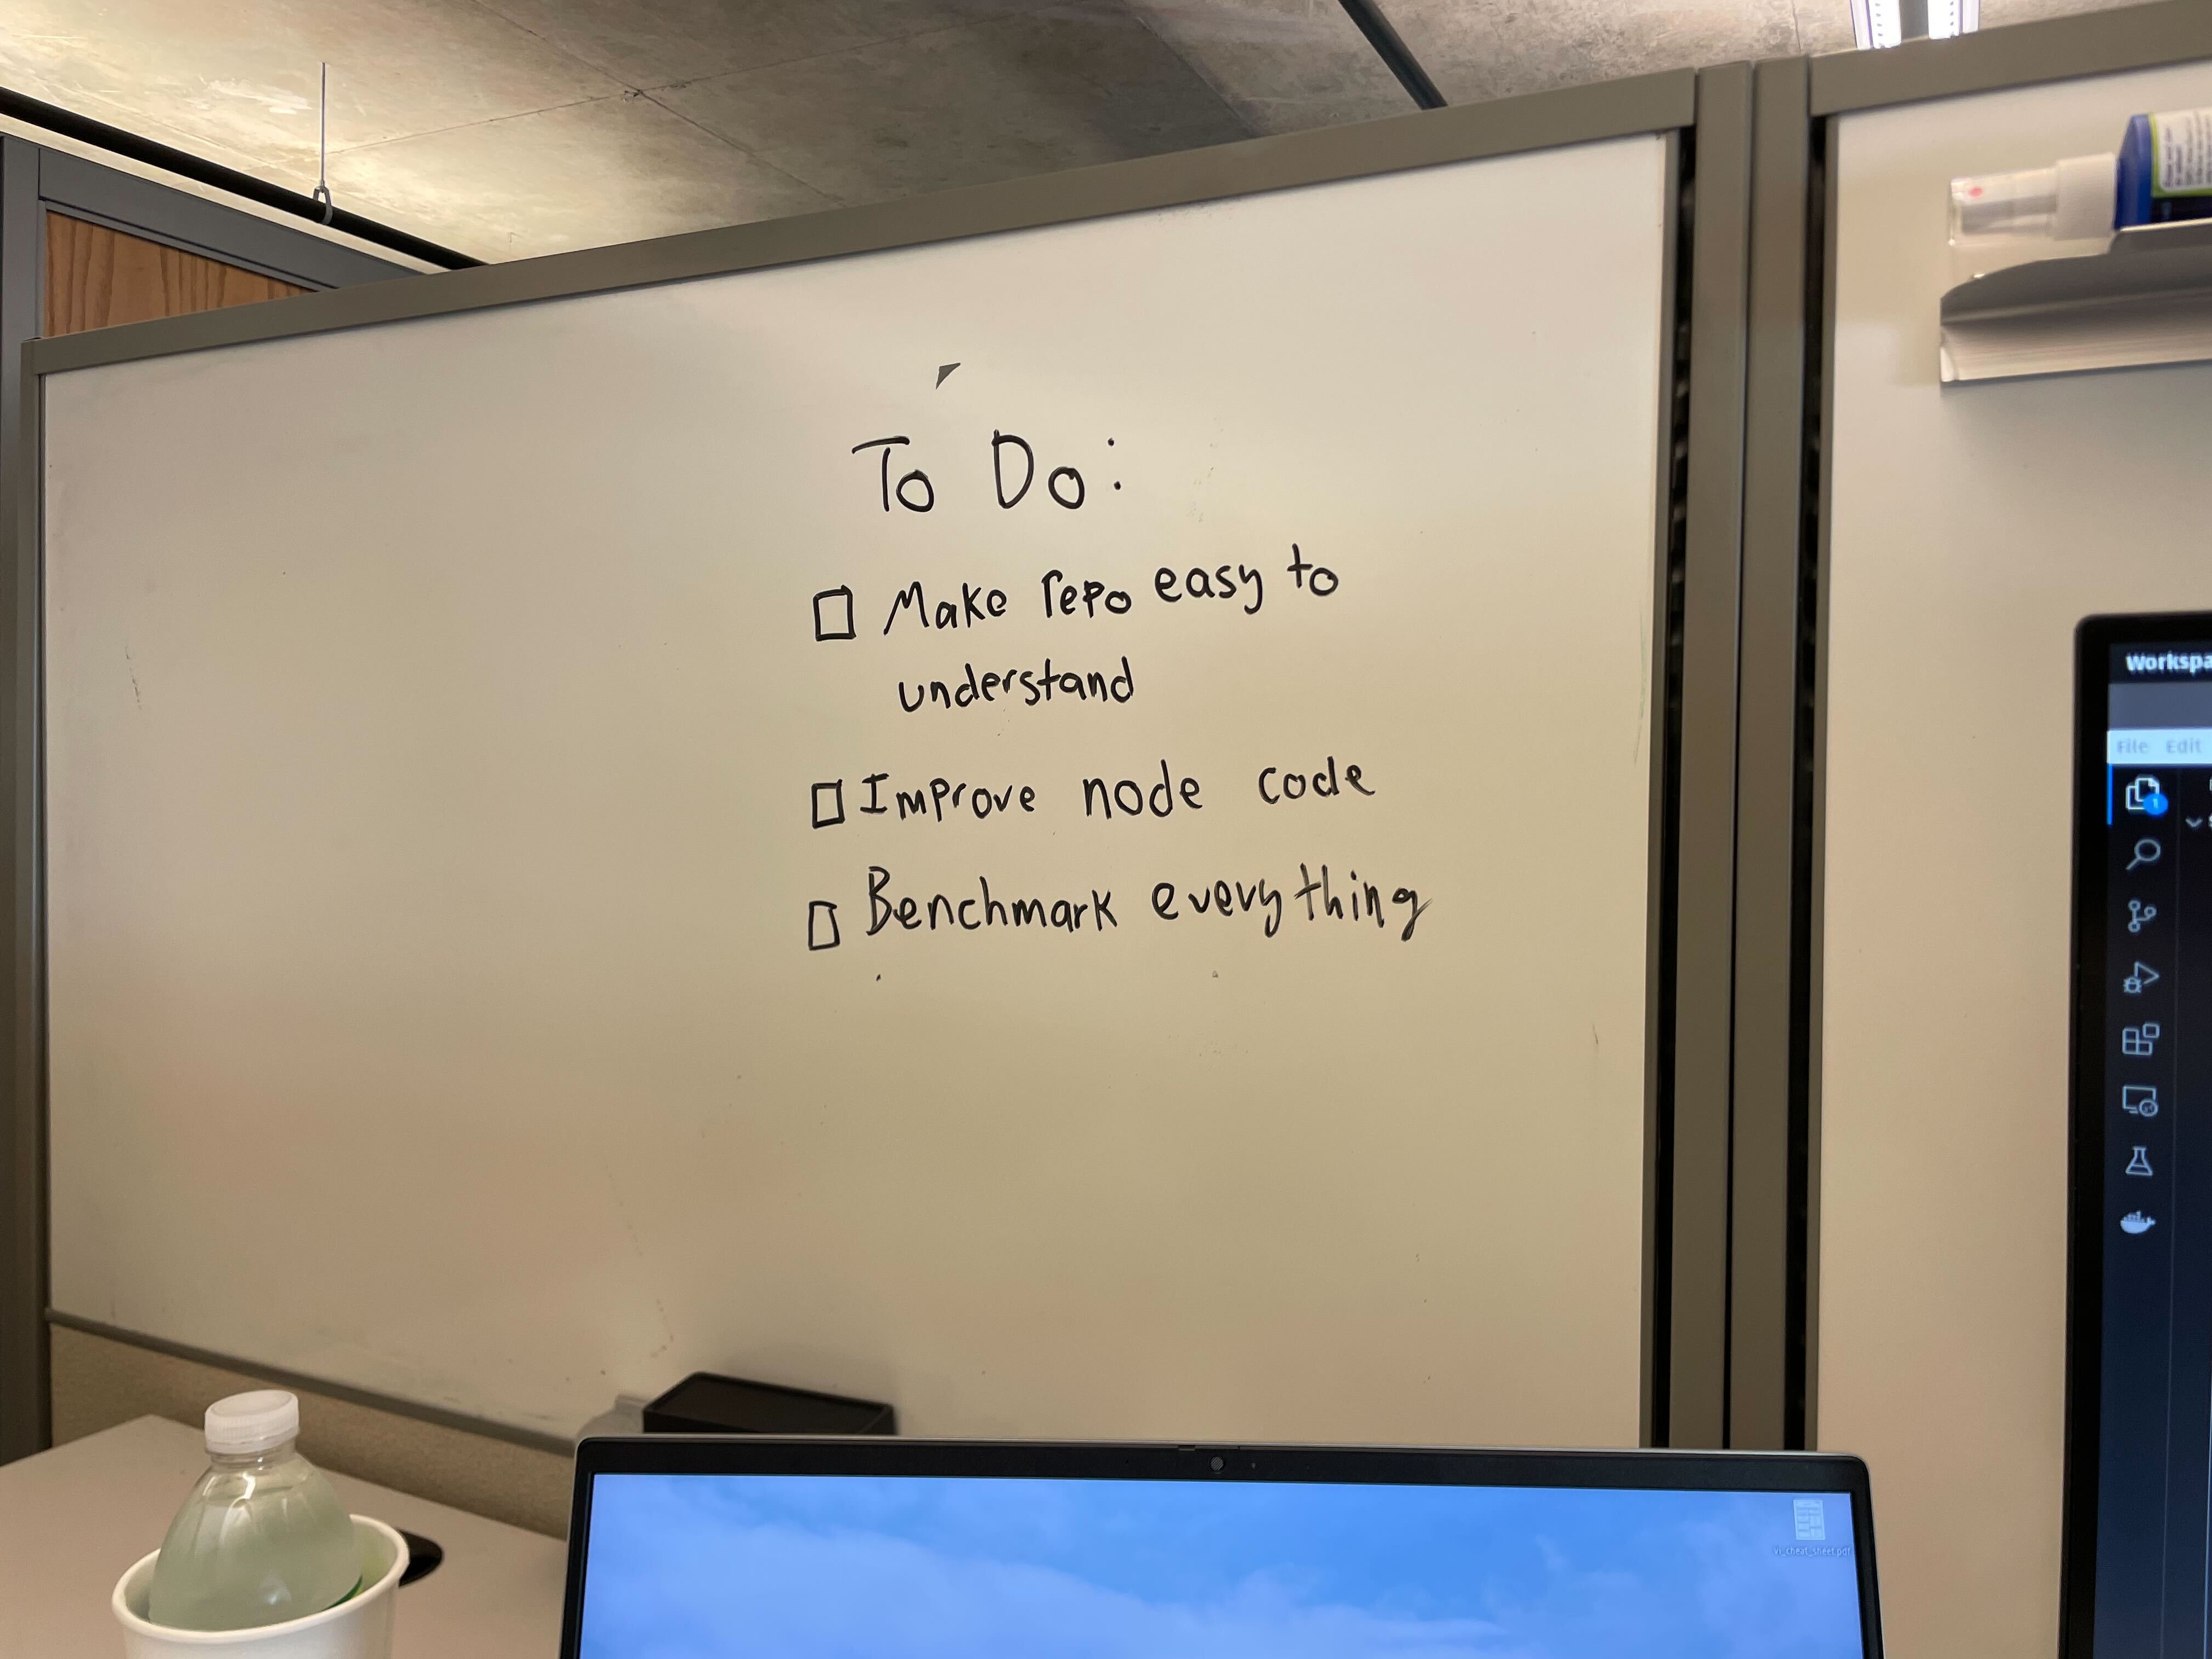 To Do:
Make repo easy to
understand
Improve node code
Benchmark everything
Workspa
File Edit
1
vi_cheat_sheet.pdf